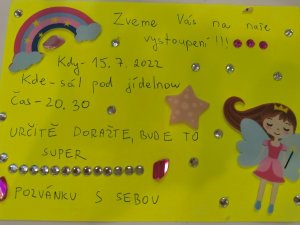 Zveme Vás na naše
vystoupení!!!
Kdy- 15.7.2022
Kde- sál pod jídelnow
Čas- 20.30
URČITĚ DORAŽTE, BUDE TO
SUPER
POZVÁNKU S SEBOU